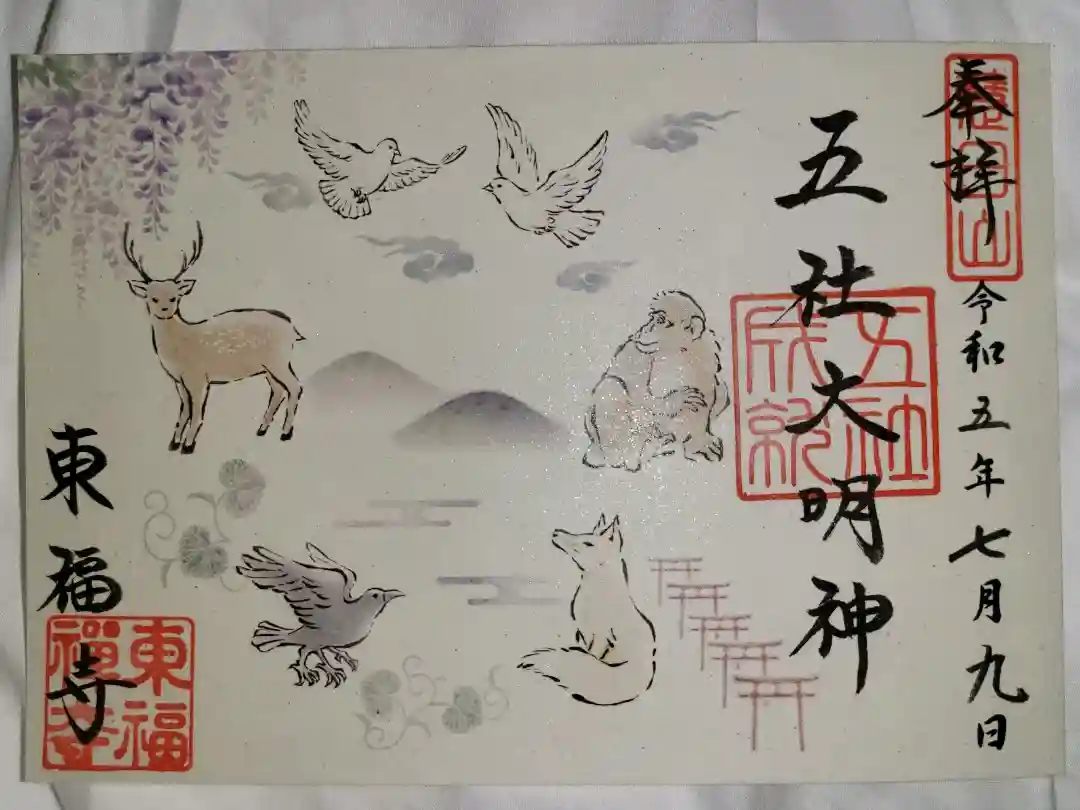 奉拝
令和五年七月九日
五社大明神
五社
成就
東福寺
東福
禪寺